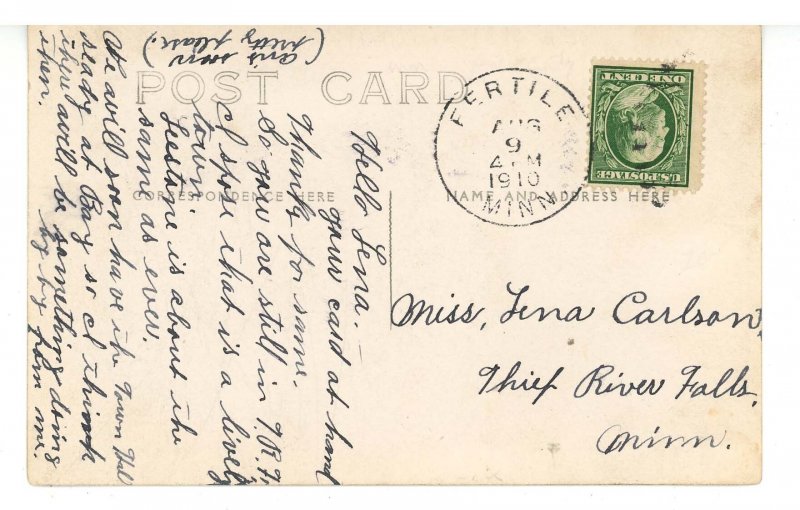 POST CARD
CORRESPONDENCE HERE
NAME AND ADDRESS HERE
FERTILE
AUG
9
4 PM
1910
MINN
U.S. POSTAGE
ONE CENT
Miss, Lena Carlson,
Thief River Falls,
Minn.
Hello Lena. —
your card at hand
Thanks for same.
So you are still in T.R.F.
I spose that is a lively
town.
is about the
same as ever.
We will soon have the Town Hall
ready at Bay so I think
there will be something doing
then.
by by from me.
(ans soon
pretty please.)